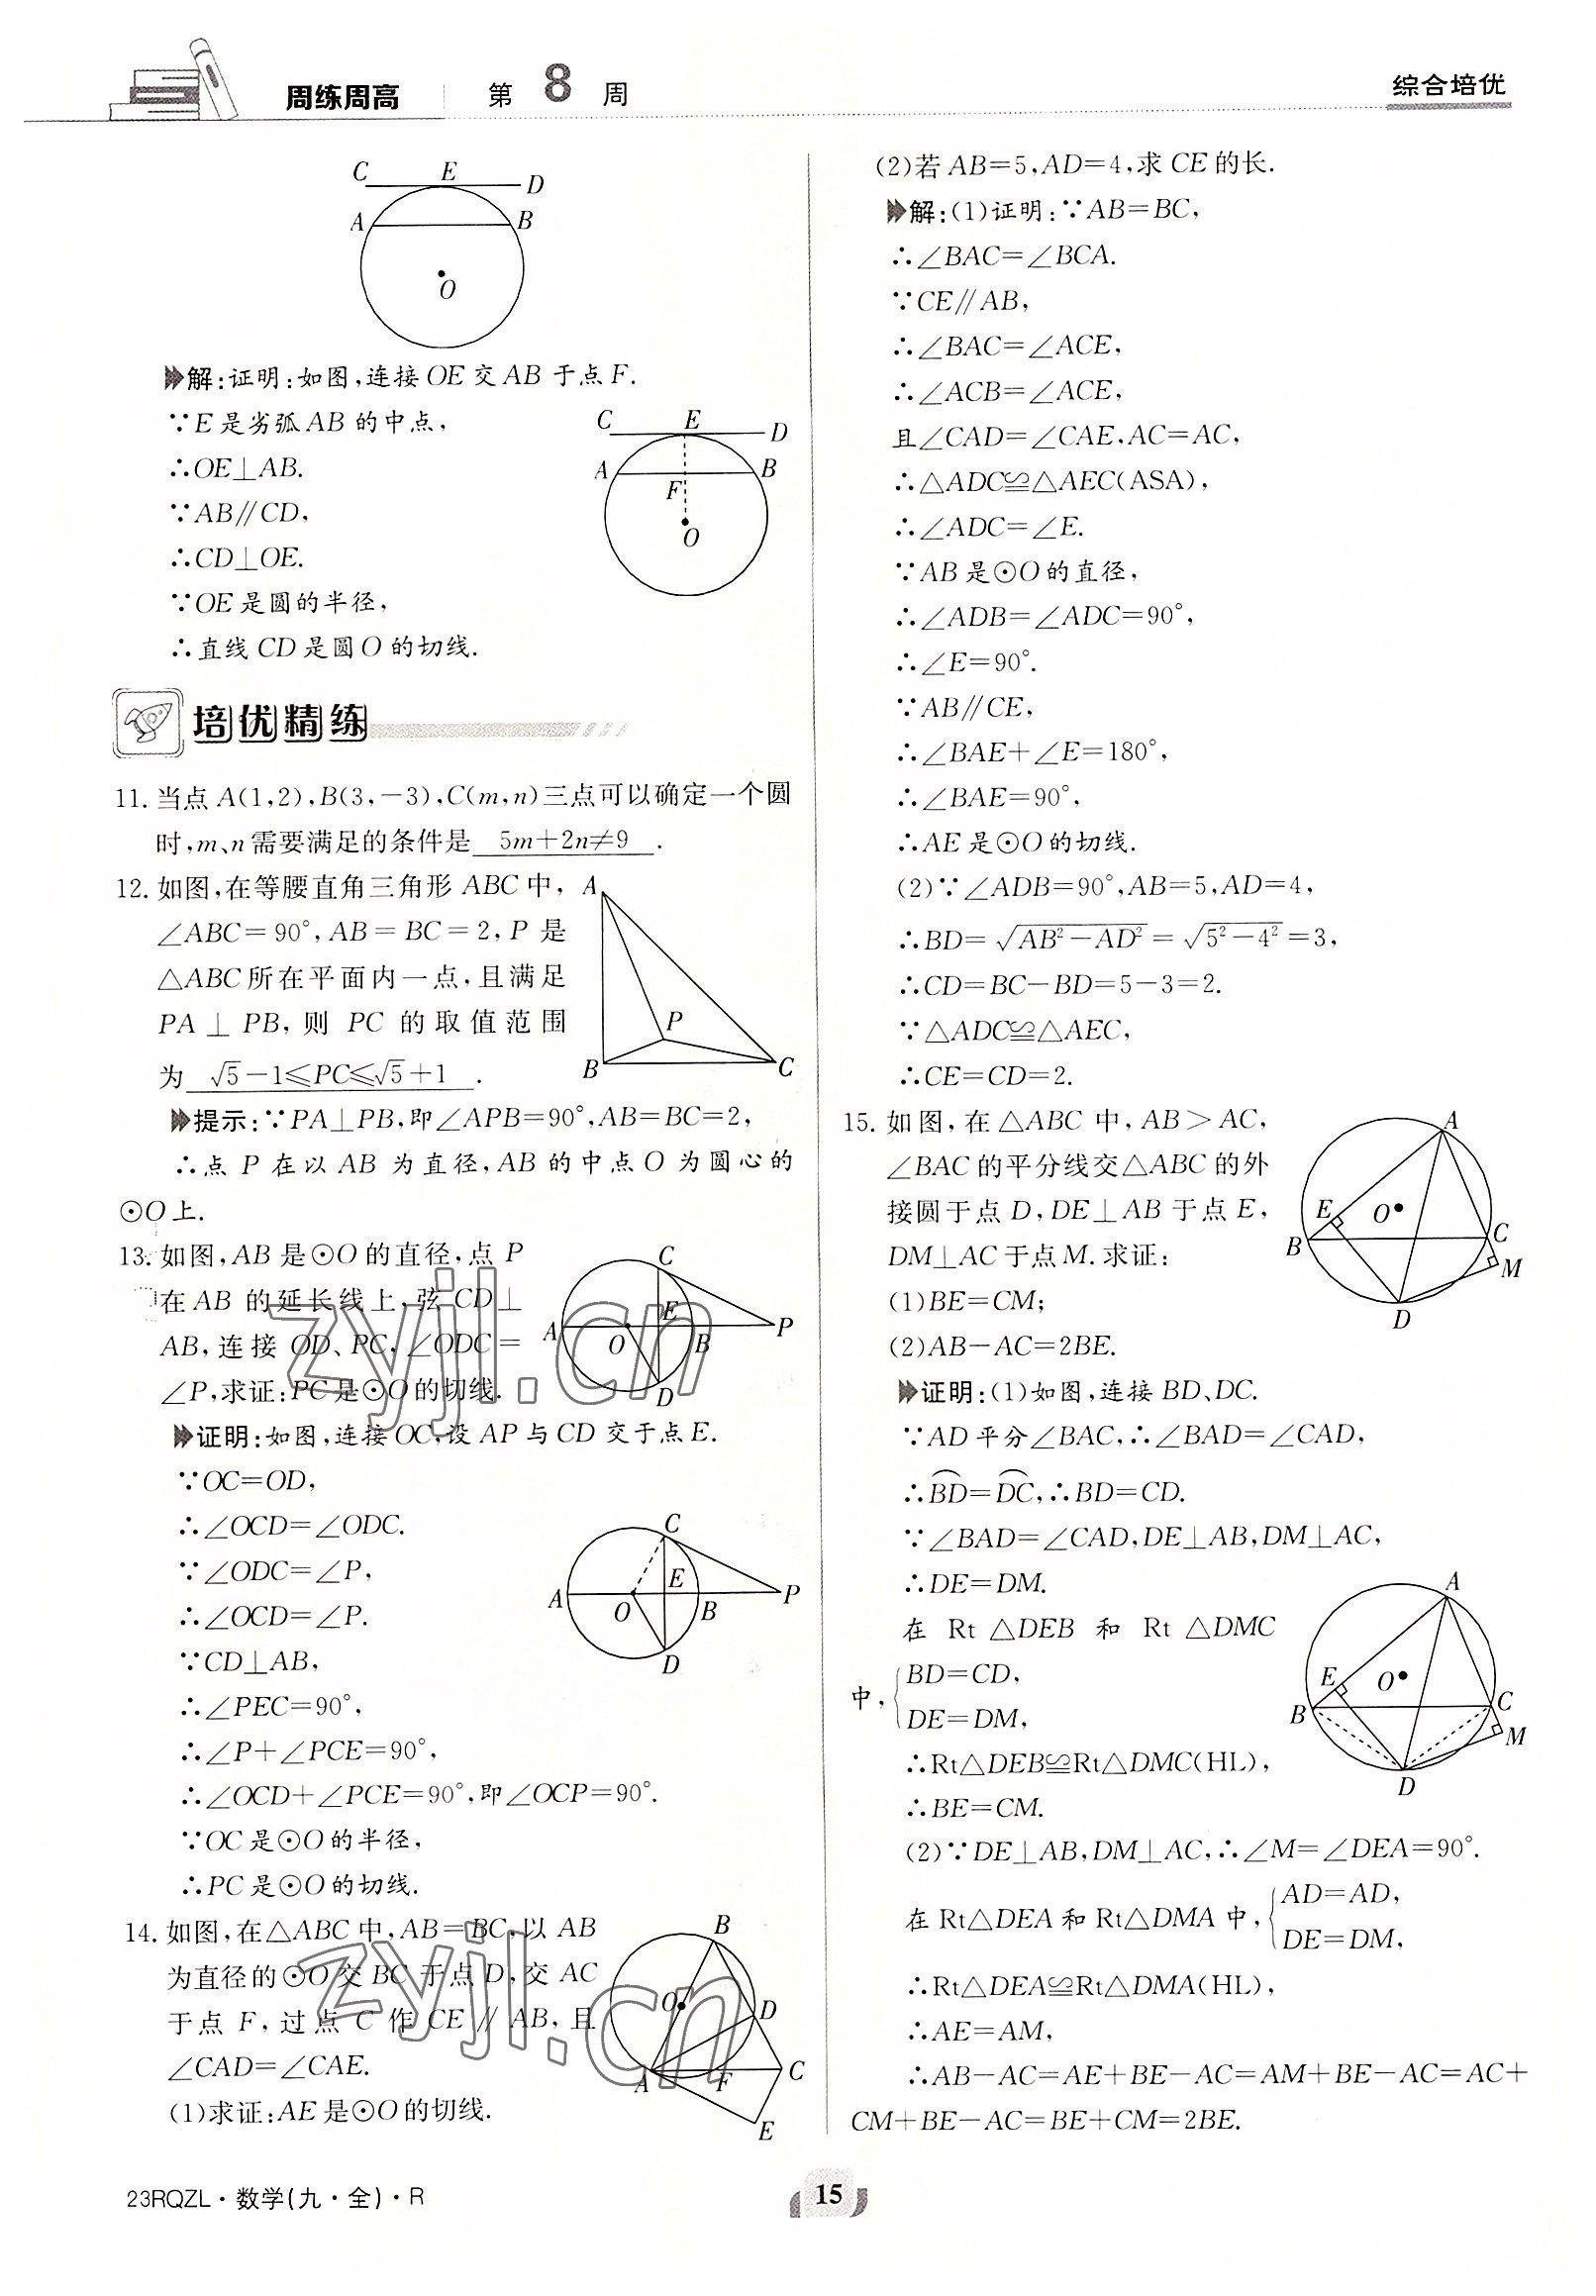 周练周高 第 8 周
综合培优
C E D
A B
O
解:证明:如图,连接OE交AB于点F.
∵E是劣弧AB的中点,
∴OE⊥AB.
∵AB∥CD,
∴CD⊥OE.
∵OE是圆的半径,
∴直线CD是圆O的切线.
C E D
A B
F
O
培优精练
11. 当点A(1,2),B(3,-3),C(m,n)三点可以确定一个圆
时,m、n需要满足的条件是 5m+2n≠9 .
12. 如图,在等腰直角三角形ABC中,
∠ABC=90°,AB=BC=2,P是
△ABC所在平面内一点,且满足
PA⊥PB,则PC的取值范围
为 √5-1≤PC≤√5+1 .
A
P
B C
提示:∵PA⊥PB,即∠APB=90°,AB=BC=2,
∴点P在以AB为直径,AB的中点O为圆心的
⊙O上.
13. 如图,AB是⊙O的直径,点P
在AB的延长线上,弦CD⊥
AB,连接OD、PC,∠ODC=
∠P,求证:PC是⊙O的切线.
C
E
A O B P
D
证明:如图,连接OC,设AP与CD交于点E.
∵OC=OD,
∴∠OCD=∠ODC.
∵∠ODC=∠P,
∴∠OCD=∠P.
∵CD⊥AB,
∴∠PEC=90°,
∴∠P+∠PCE=90°,
∴∠OCD+∠PCE=90°,即∠OCP=90°.
∵OC是⊙O的半径,
∴PC是⊙O的切线.
C
E
A O B P
D
14. 如图,在△ABC中,AB=BC,以AB
为直径的⊙O交BC于点D,交AC
于点F,过点C作CE∥AB,且
∠CAD=∠CAE.
(1)求证:AE是⊙O的切线.
B
O
D
A F C
E
(2)若AB=5,AD=4,求CE的长.
解:(1)证明:∵AB=BC,
∴∠BAC=∠BCA.
∵CE∥AB,
∴∠BAC=∠ACE,
∴∠ACB=∠ACE,
且∠CAD=∠CAE,AC=AC,
∴△ADC≌△AEC(ASA),
∴∠ADC=∠E.
∵AB是⊙O的直径,
∴∠ADB=∠ADC=90°,
∴∠E=90°.
∵AB∥CE,
∴∠BAE+∠E=180°,
∴∠BAE=90°,
∴AE是⊙O的切线.
(2)∵∠ADB=90°,AB=5,AD=4,
∴BD=√(AB²-AD²)=√(5²-4²)=3,
∴CD=BC-BD=5-3=2.
∵△ADC≌△AEC,
∴CE=CD=2.
15. 如图,在△ABC中,AB>AC,
∠BAC的平分线交△ABC的外
接圆于点D,DE⊥AB于点E,
DM⊥AC于点M.求证:
(1)BE=CM;
(2)AB-AC=2BE.
A
E O
B C
M
D
证明:(1)如图,连接BD、DC.
∵AD平分∠BAC,∴∠BAD=∠CAD,
∴⌒BD=⌒DC,∴BD=CD.
∵∠BAD=∠CAD,DE⊥AB,DM⊥AC,
∴DE=DM.
在Rt△DEB和Rt△DMC
中,{BD=CD,
DE=DM,
∴Rt△DEB≌Rt△DMC(HL),
∴BE=CM.
A
E O
B C
M
D
(2)∵DE⊥AB,DM⊥AC,∴∠M=∠DEA=90°.
在Rt△DEA和Rt△DMA中,{AD=AD,
DE=DM,
∴Rt△DEA≌Rt△DMA(HL),
∴AE=AM,
∴AB-AC=AE+BE-AC=AM+BE-AC=AC+
CM+BE-AC=BE+CM=2BE.
zyjl.cn
zyjl.cn
23RQZL·数学(九·全)·R
15